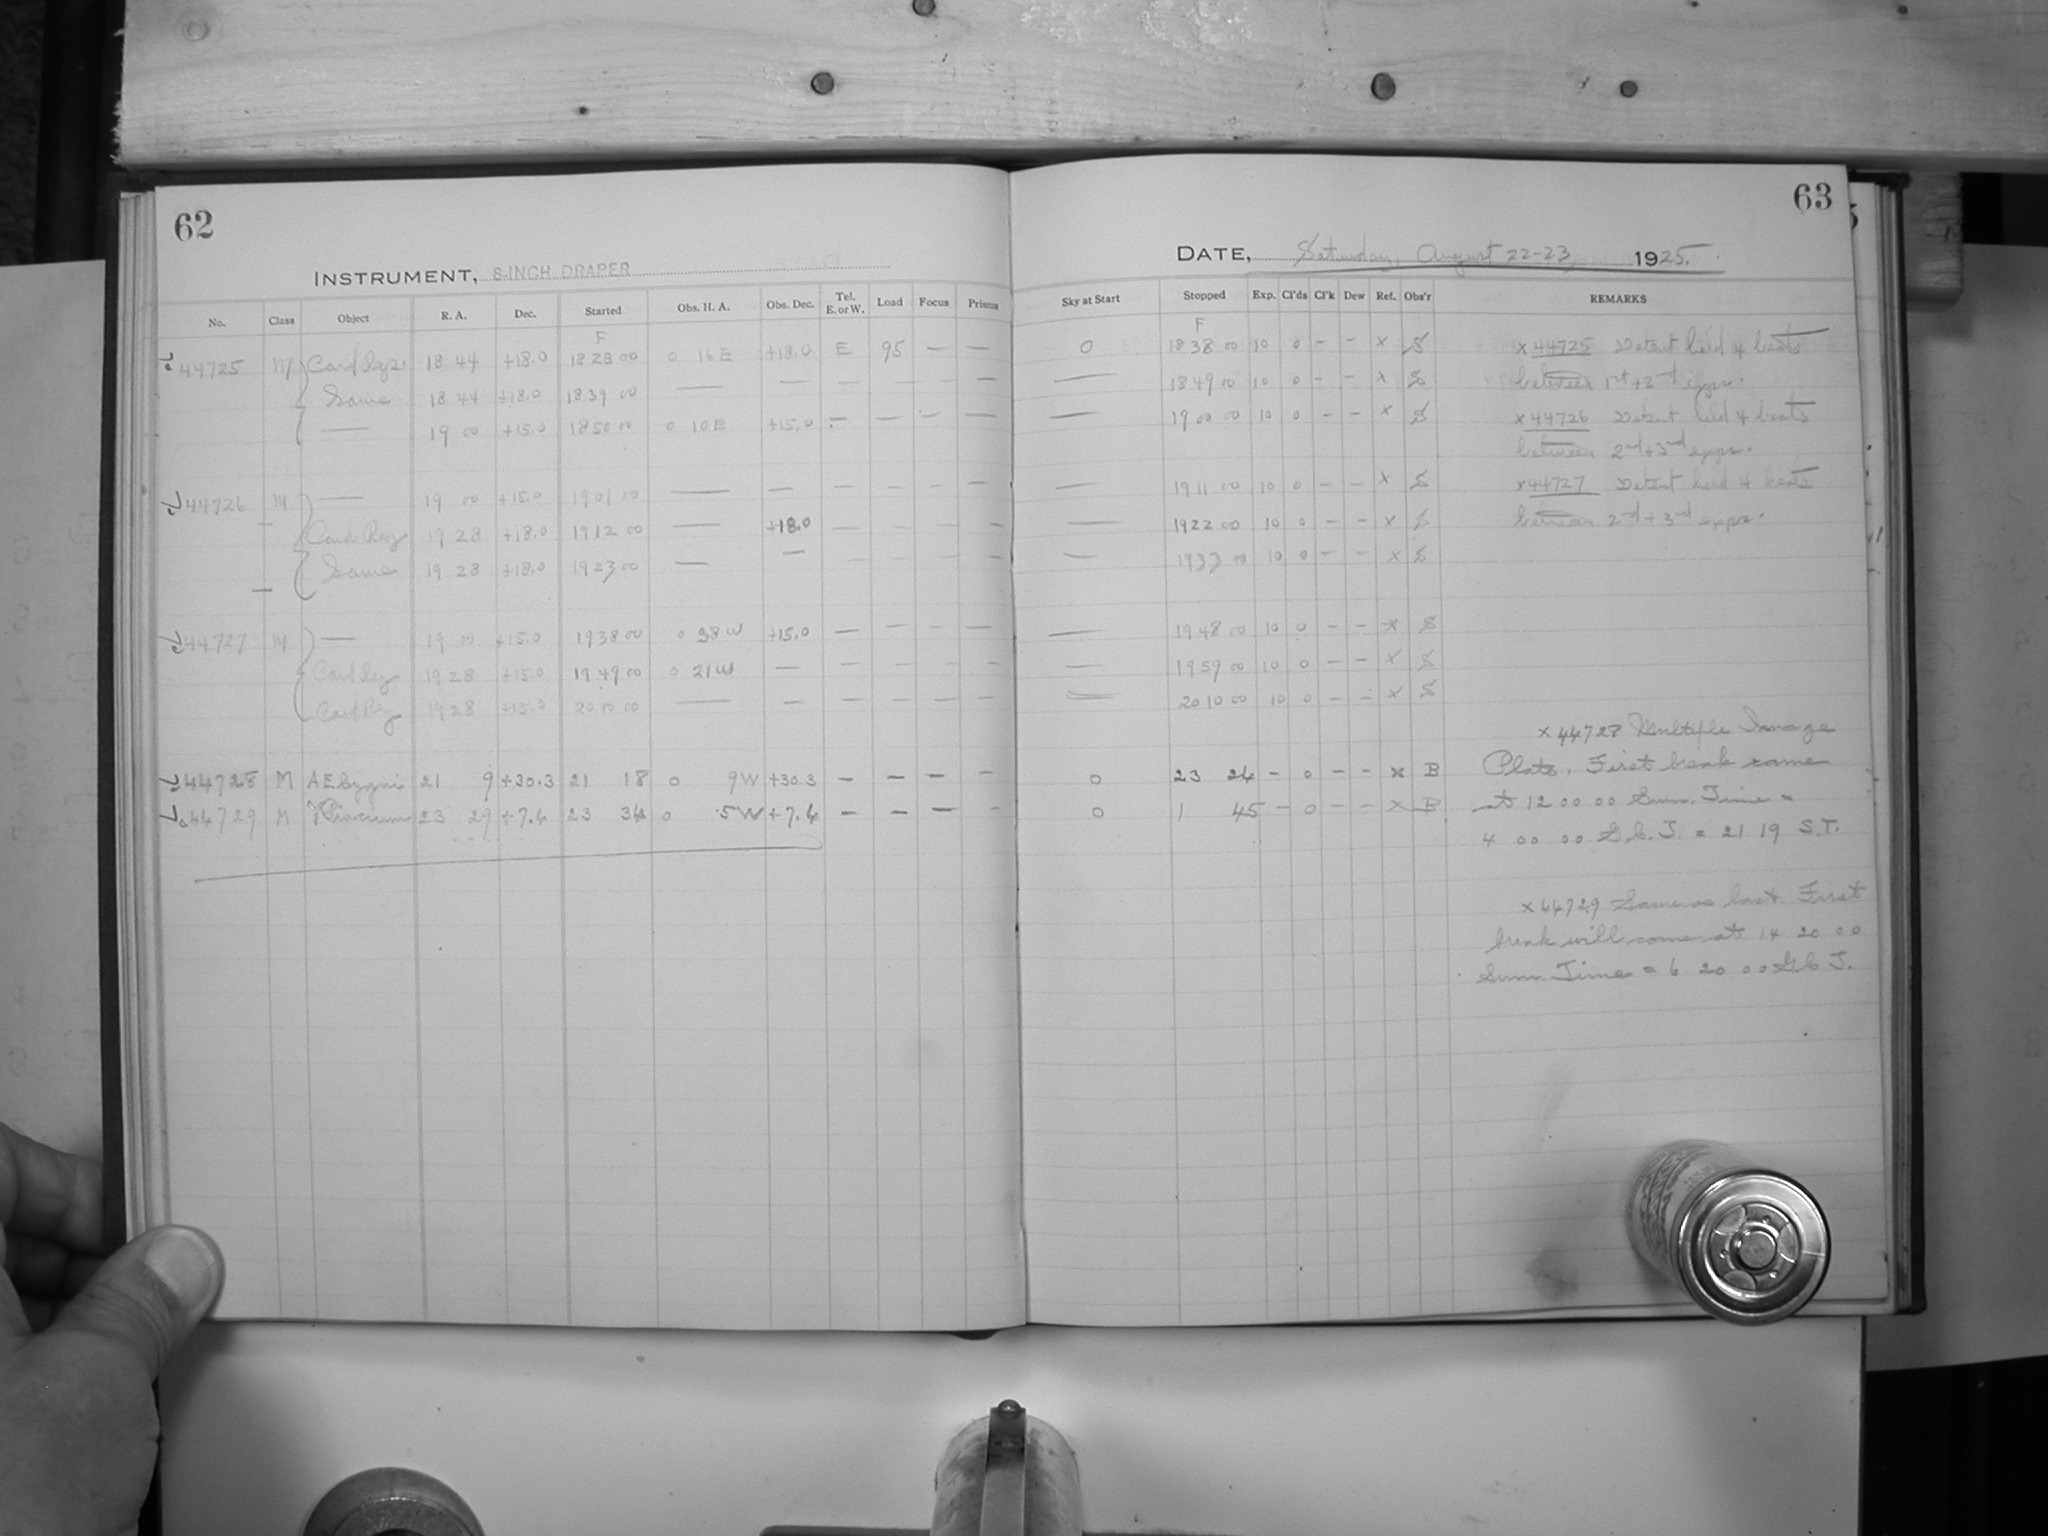 62
INSTRUMENT, 8-INCH DRAPER
No. Class Object R. A. Dec. Started Obs. H. A. Obs. Dec. Tel. E. or W. Load Focus Prisms
F
44725 M Card Reg. 18 44 +18.0 18 28 00 0 16 E +18.0 E 95 — —
Same 18 44 +18.0 18 39 00 — — — — — —
— 19 00 +15.0 18 50 00 0 10 E +15.0 — — — —
44726 M — 19 00 +15.0 19 01 00 — — — — — —
Card Reg 19 28 +18.0 19 12 00 — +18.0 — — — —
Same 19 28 +18.0 19 23 00 — — — — — —
44727 M — 19 00 +15.0 19 38 00 0 38 W +15.0 — — — —
Card Reg 19 28 +15.0 19 49 00 0 21 W — — — — —
Card Reg 19 28 +15.0 20 00 00 — — — — — —
44728 M A E Cygni 21 9 +30.3 21 18 0 9 W +30.3 — — — —
44729 M 23 29 +7.4 23 34 0 5 W +7.4 — — — —
63
DATE, Saturday, August 22-23, 1925.
Sky at Start Stopped Exp. Cl'ds Cl'k Dew Ref. Obs'r REMARKS
F
0 18 38 00 10 0 — — x S
— 18 49 00 10 0 — — x S
— 19 00 00 10 0 — — x S
— 19 11 00 10 0 — — x S
— 19 22 00 10 0 — — x S
— 19 33 00 10 0 — — x S
— 19 48 00 10 0 — — x S
— 19 59 00 10 0 — — x S
— 20 10 00 10 0 — — x S
0 23 24 — 0 — — x B
0 1 45 — 0 — — x B
x 44725 Detent held 4 beats
between 1st + 2nd exps.
x 44726 Detent held 4 beats
between 2nd + 3rd exps.
x 44727 Detent held 4 beats
between 2nd + 3rd exps.
x 44728 Multiple Image
Plate. First break came
at 12 00 00 Summ. Time =
4 00 00 G.C.T. = 21 19 S.T.
x 44729 Same as last. First
break will come at 14 20 00
Summ. Time = 6 20 00 G.C.T.